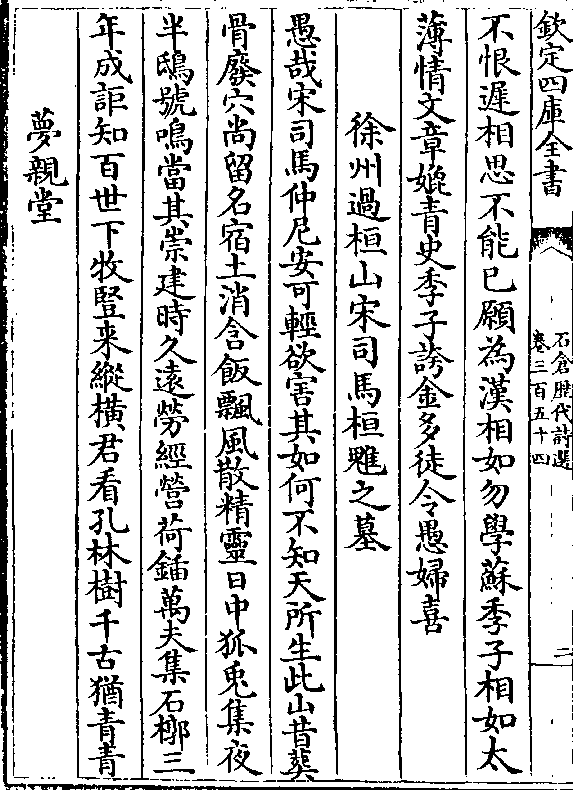 欽定四庫全書
石倉歷代詩選
卷三百五十四
二
不恨遲相思不能已願為漢相如勿學蘇季子相如太
薄情文章媲青史季子誇金多徒令愚婦喜
徐州過桓山宋司馬桓魋之墓
愚哉宋司馬仲尼安可輕欲害其如何不知天所生此山昔葬
骨廢穴尚留名宿土消含飯飄風散精靈日中狐兎集夜
半鴟號鳴當其崇建時久遠勞經營荷鍤萬夫集石槨三
年成詎知百世下牧豎来縱橫君看孔林樹千古猶青青
夢親堂